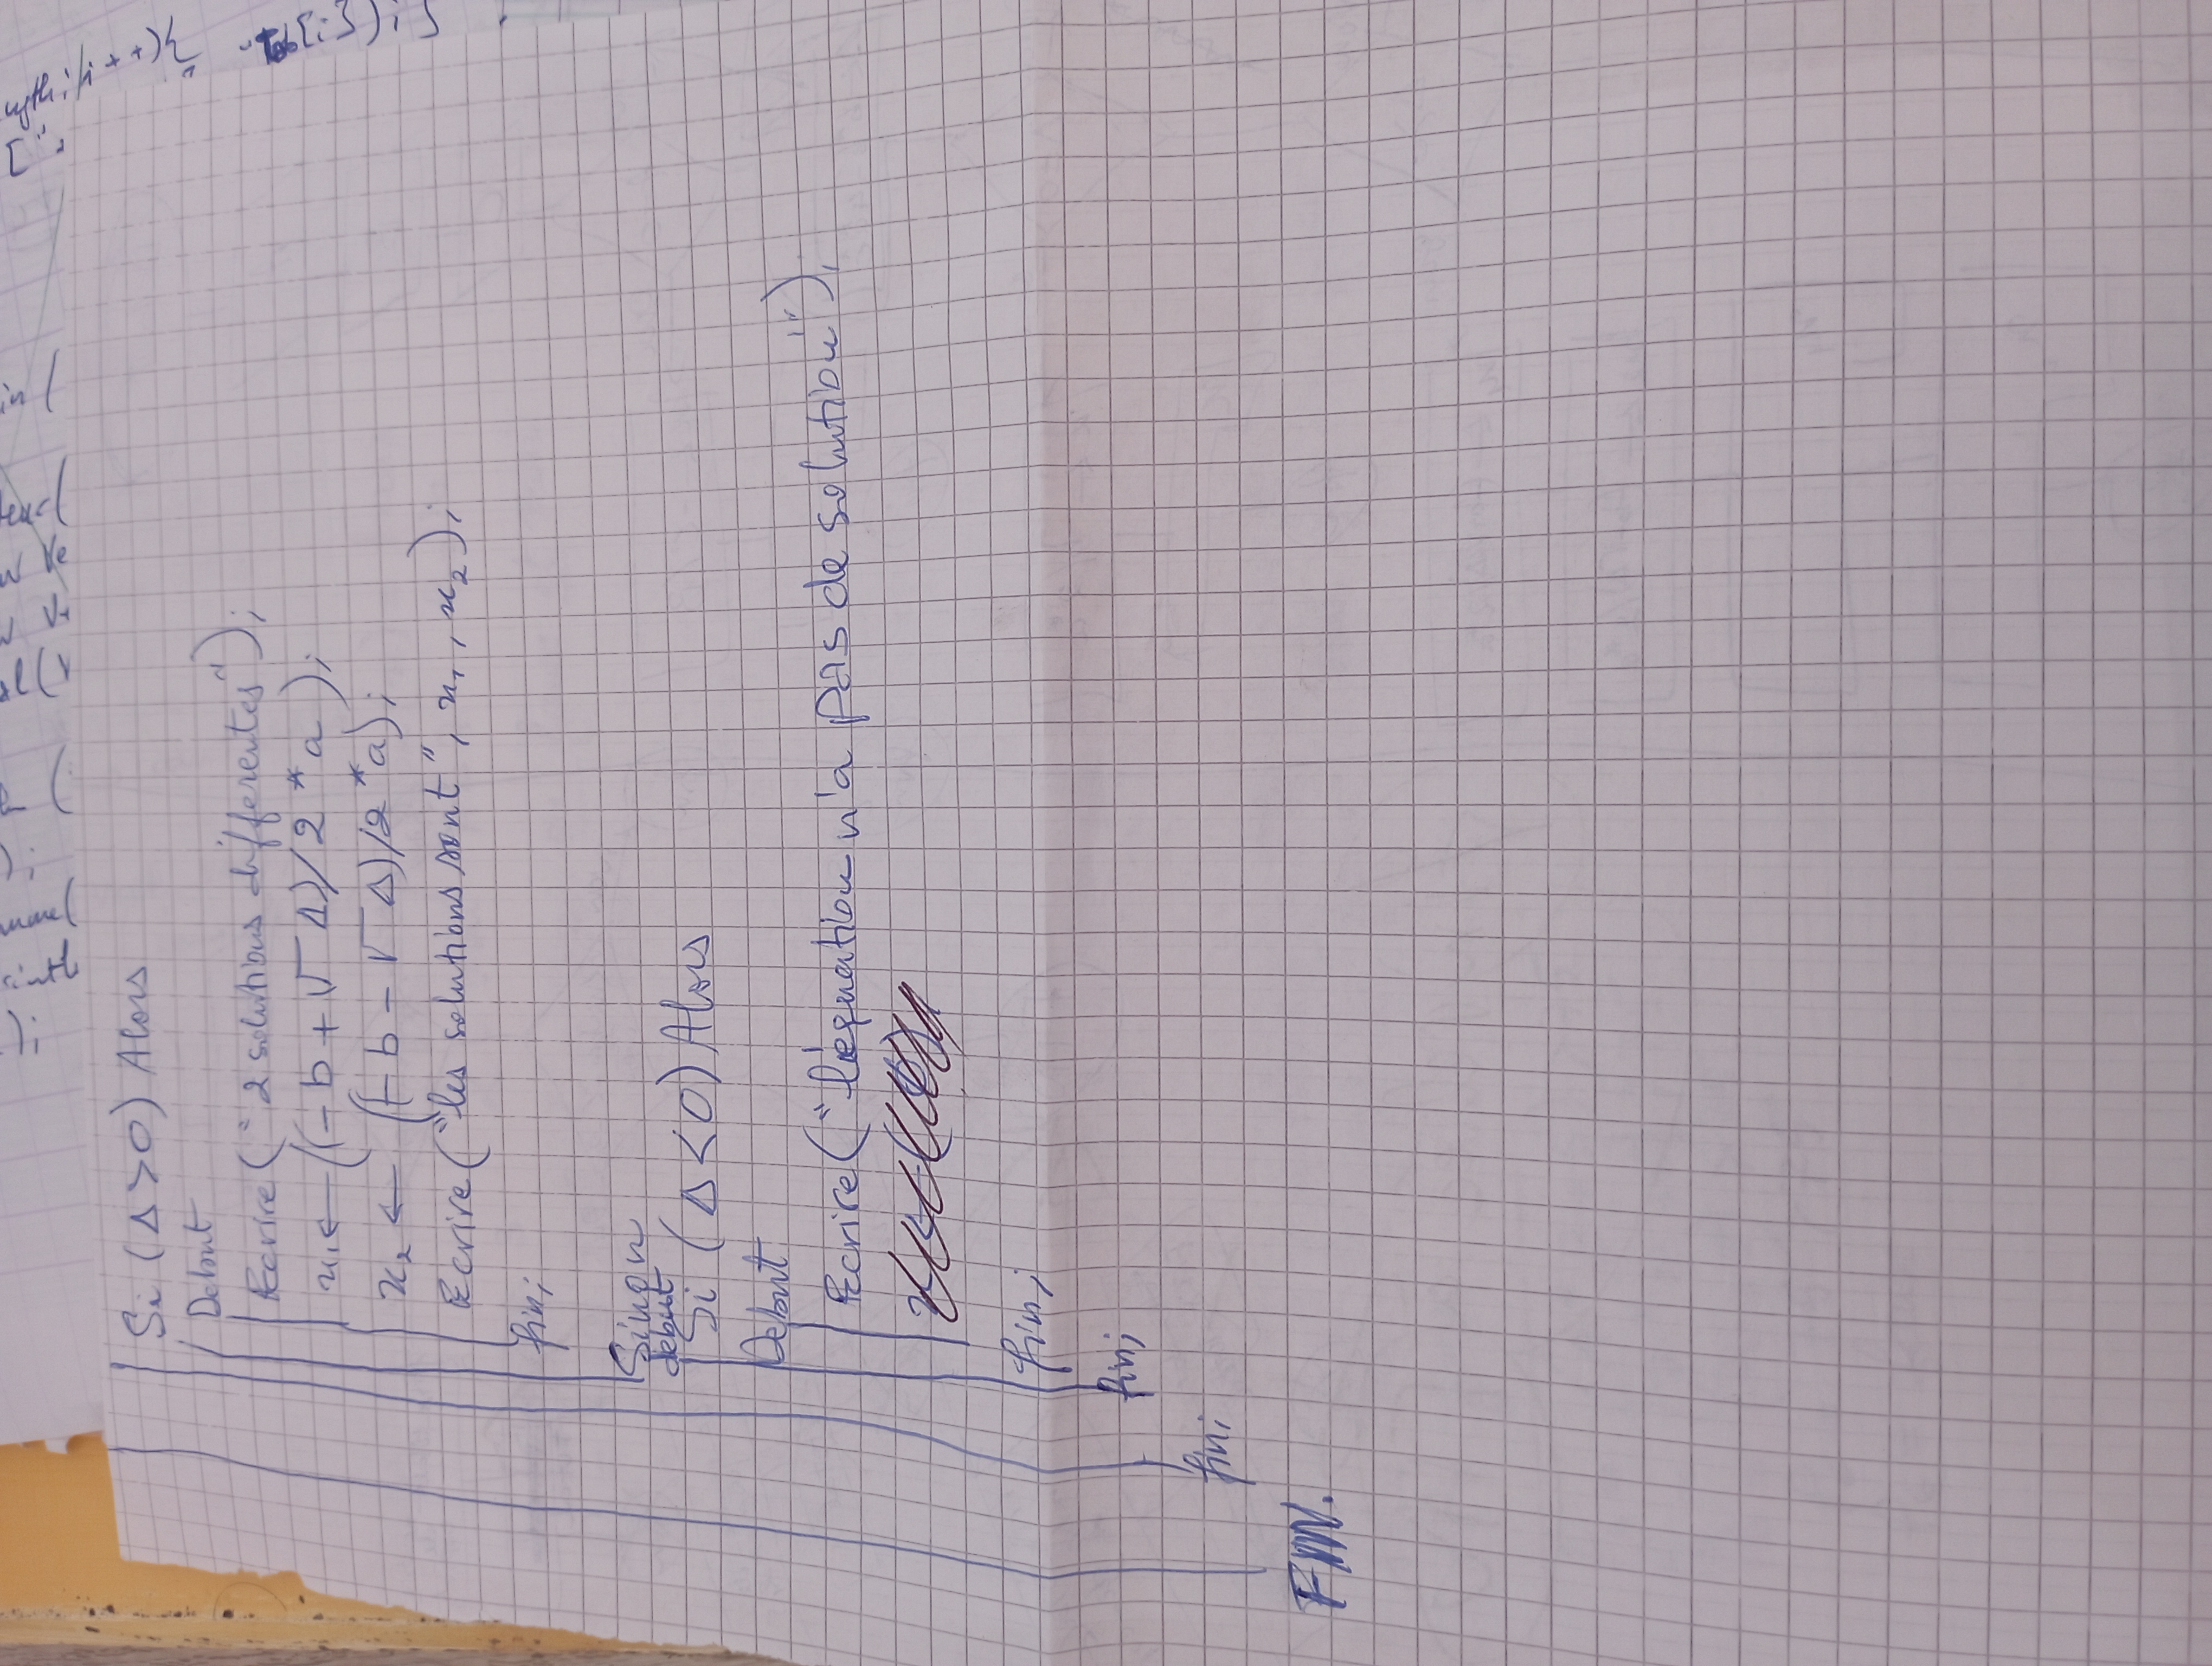 Si (Δ>0) Alors
Debut
Ecrire("2 solutions differentes");
x₁ ← ((-b+√Δ)/2*a);
x₂ ← ((-b-√Δ)/2*a);
Ecrire("les solutions sont", x₁, x₂);
fin;
Sinon
debut
Si (Δ<0) Alors
Debut
Ecrire("l'équation n'a pas de solution");
fin;
fin;
fin;
FIN.